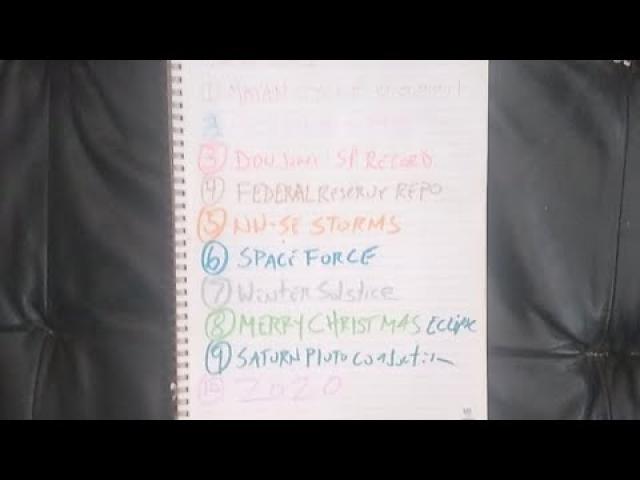 ① MAYAN
②
③ DOW JONES SP RECORD
④ FEDERAL RESERVE REPO
⑤ NW-SE STORMS
⑥ SPACE FORCE
⑦ Winter Solstice
⑧ MERRY CHRISTMAS Eclipse
⑨ SATURN PLUTO
⑩ 2020